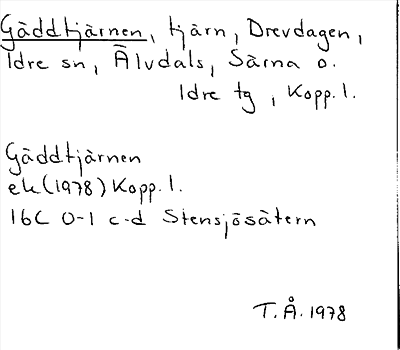 Gäddtjärnen, tjärn, Drevdagen,
Idre sn, Älvdals, Särna o.
Idre tg, Kopp. l.
Gäddtjärnen
ek (1978) Kopp. l.
16C 0-1 c-d Stensjösätern
T. Å. 1978